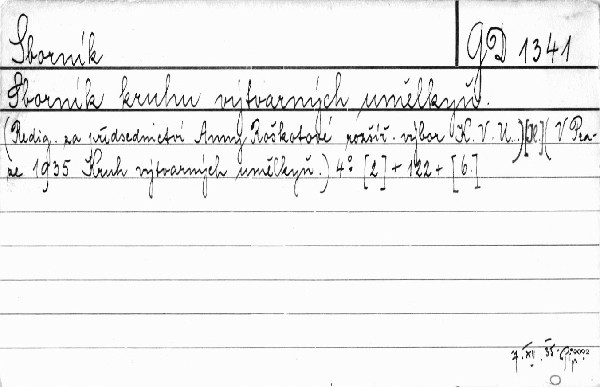 Sborník GD 1341
Sborník kruhu výtvarných umělkyň.
(Redig. za předsednictví Anny Roškotové rozšíř. výbor K. V. U.) [pc.] (V Pra-
ze 1935 Kruh výtvarných umělkyň.) 4° [2] + 122 + [6.]
7. XI. 35.